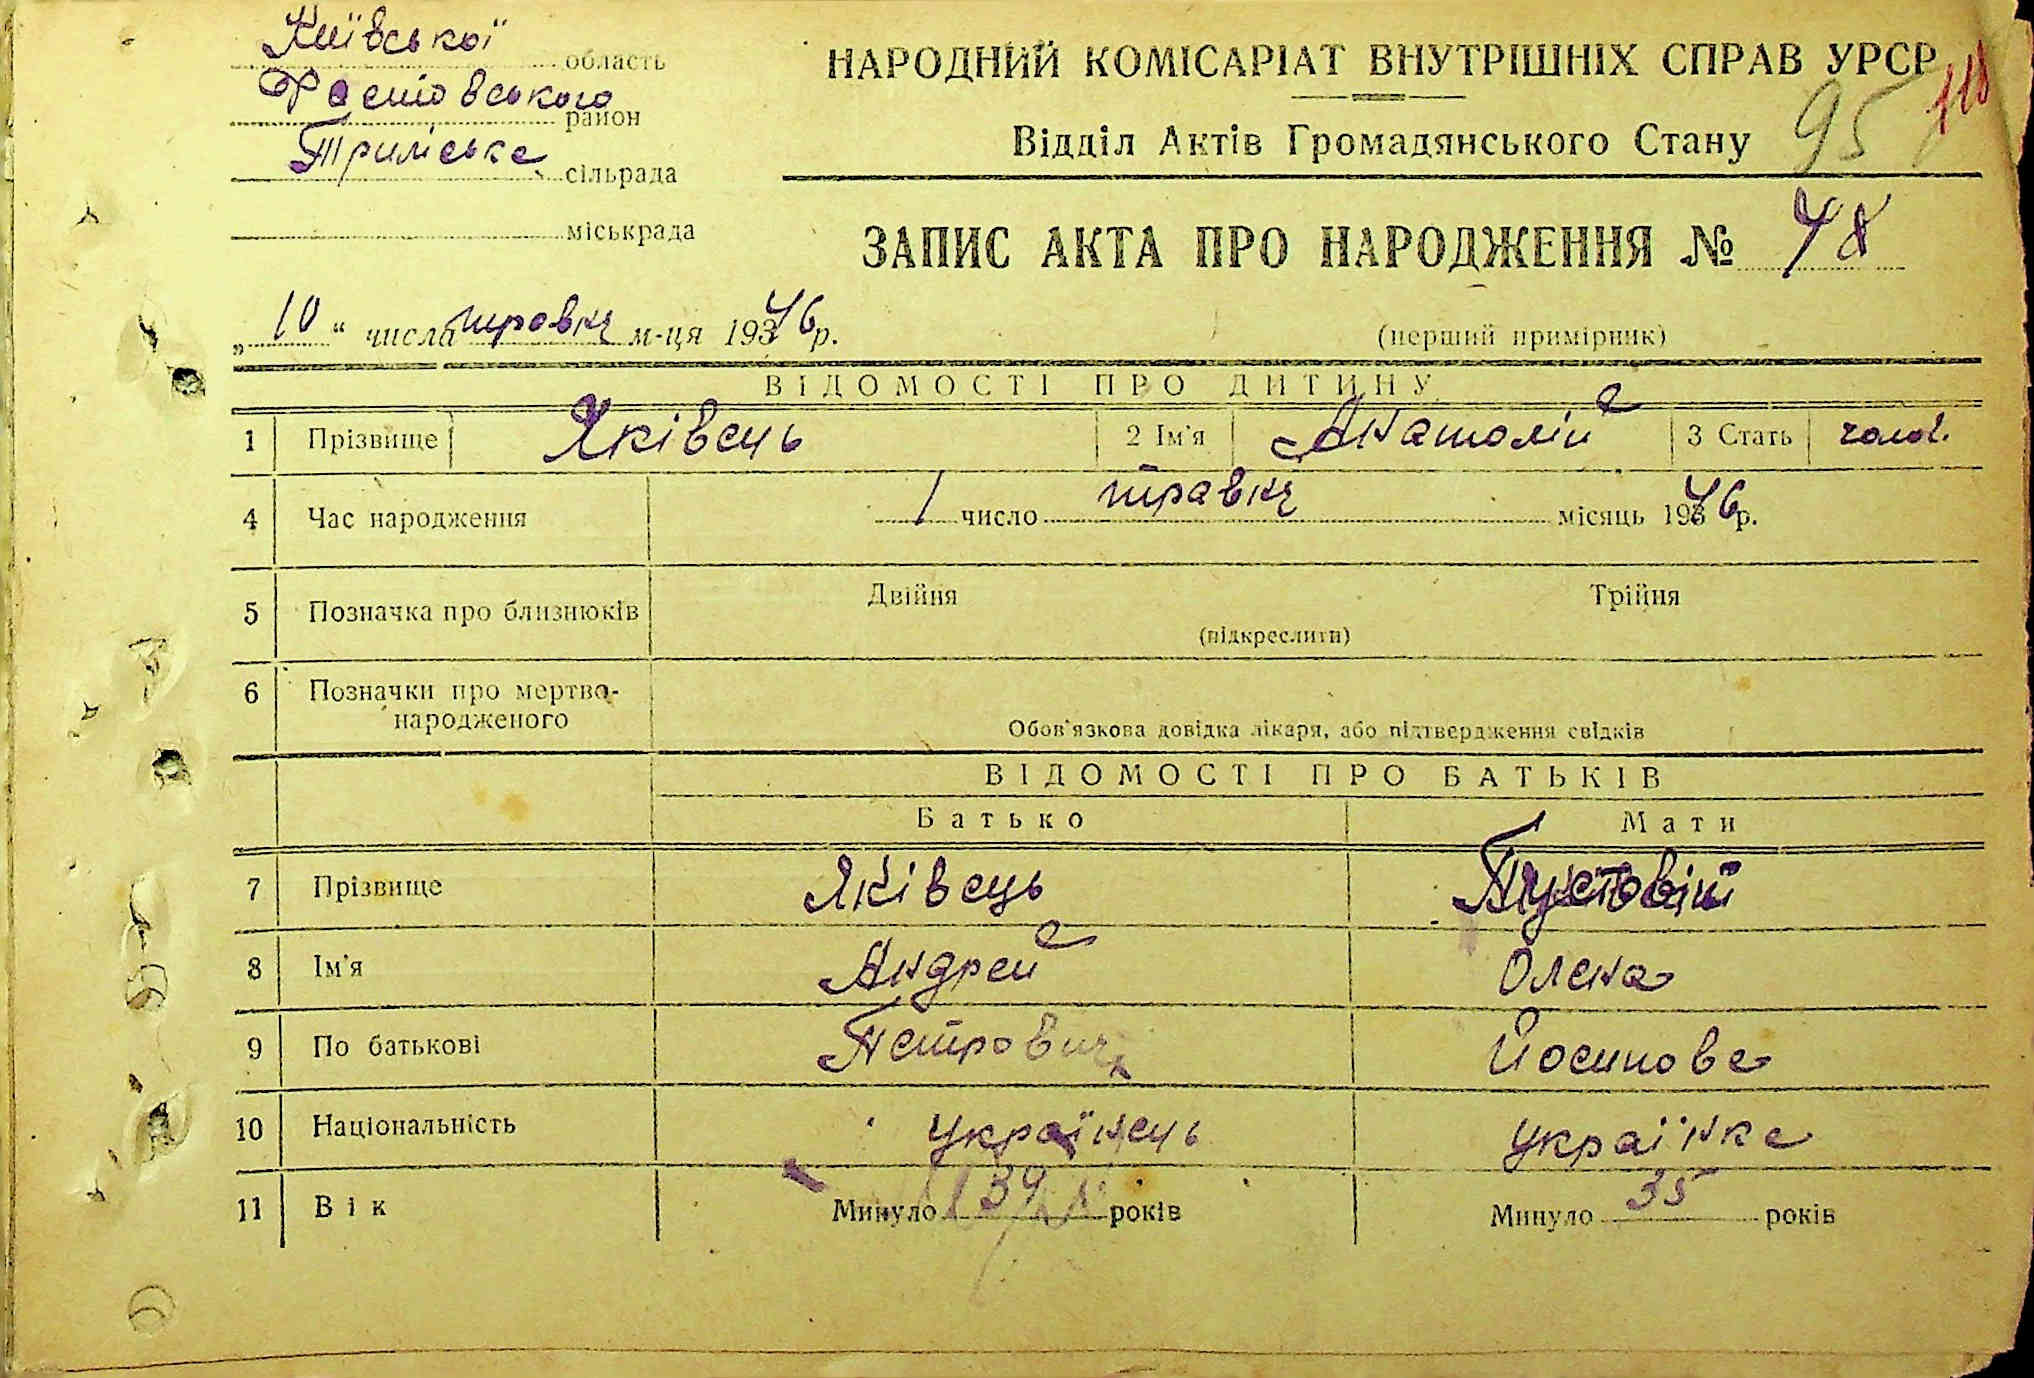 Київської область
Фастівського район
Триліська сільрада
міськрада
НАРОДНИЙ КОМІСАРІАТ ВНУТРІШНІХ СПРАВ УРСР
95 118
Відділ Актів Громадянського Стану
ЗАПИС АКТА ПРО НАРОДЖЕННЯ № 48
„ 10 “ числа травня м-ця 19346 р.
(перший примірник)
ВІДОМОСТІ ПРО ДИТИНУ
1 Прізвище Яківець 2 Ім'я Анатолій 3 Стать чолов.
4 Час народження 1 число травня місяць 19346 р.
5 Позначка про близнюків Двійня Трійня
(підкреслити)
6 Позначки про мертво-
народженого
Обов'язкова довідка лікаря, або підтвердження свідків
ВІДОМОСТІ ПРО БАТЬКІВ
Батько Мати
7 Прізвище Яківець Пустовіт
8 Ім'я Андрей Олена
9 По батькові Петрович Йосипова
10 Національність українець українка
11 Вік Минуло 39 років Минуло 35 років